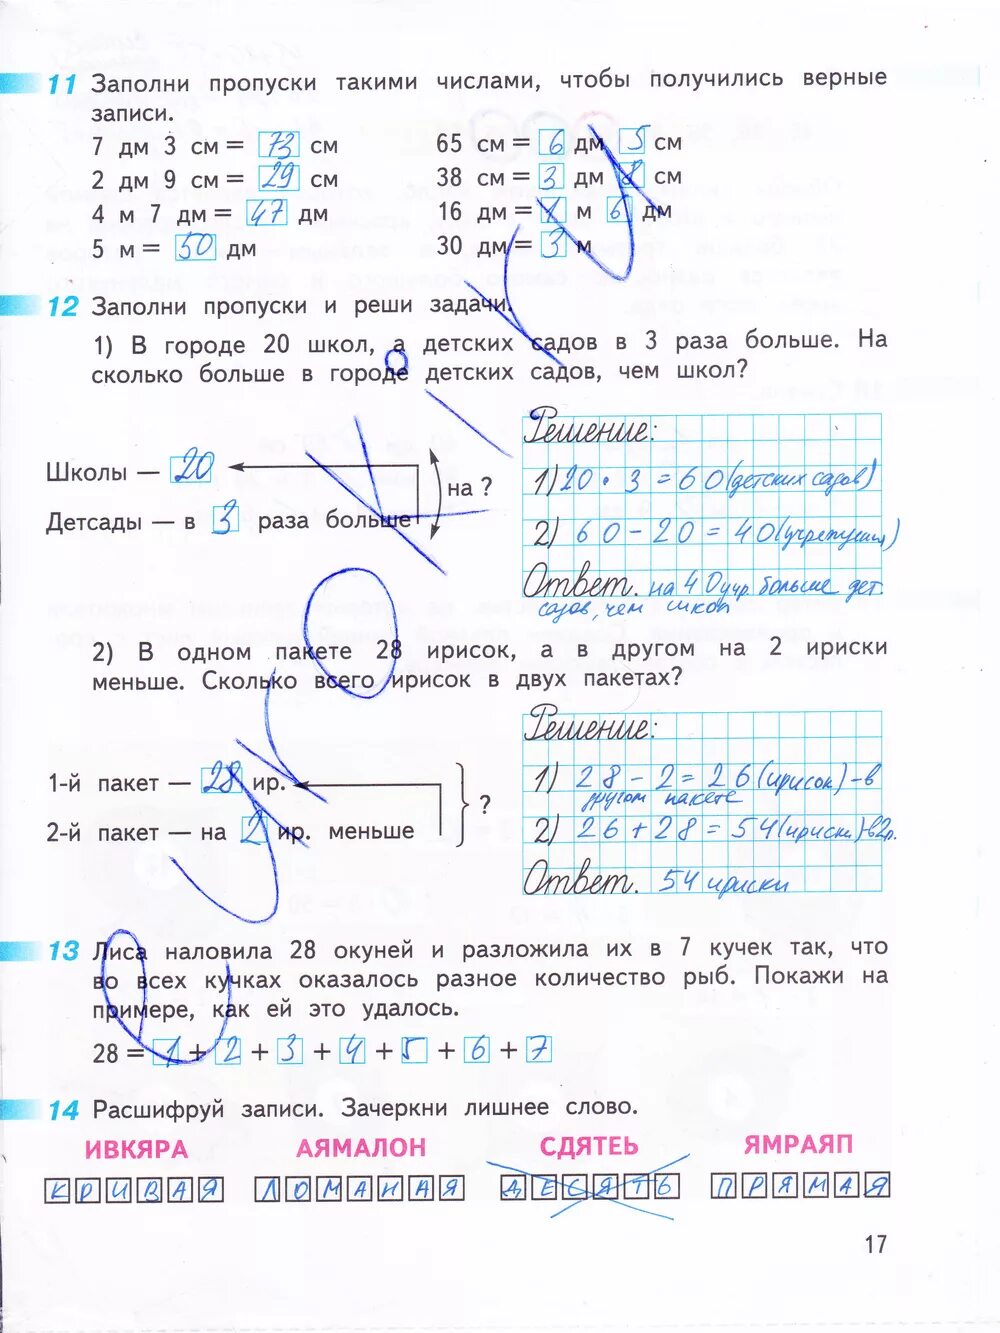 11 Заполни пропуски такими числами, чтобы получились верные
записи.
7 дм 3 см = 73 см
65 см = 6 дм 5 см
2 дм 9 см = 29 см
38 см = 3 дм 8 см
4 м 7 дм = 47 дм
16 дм = 1 м 6 дм
5 м = 50 дм
30 дм = 3 м
12 Заполни пропуски и реши задачи.
1) В городе 20 школ, а детских садов в 3 раза больше. На
сколько больше в городе детских садов, чем школ?
Решение:
Школы — 20
1) 20 · 3 = 60 (детских садов)
на ?
Детсады — в 3 раза больше
2) 60 - 20 = 40 (учреждения)
Ответ. на 40 учр. больше дет.
садов, чем школ
2) В одном пакете 28 ирисок, а в другом на 2 ириски
меньше. Сколько всего ирисок в двух пакетах?
Решение:
1-й пакет — 28 ир.
1) 28 - 2 = 26 (ирисок) - в
другом пакете
?
2-й пакет — на 2 ир. меньше
2) 26 + 28 = 54 (ириски) в 2 п.
Ответ. 54 ириски
13 Лиса наловила 28 окуней и разложила их в 7 кучек так, что
во всех кучках оказалось разное количество рыб. Покажи на
примере, как ей это удалось.
28 = 1 + 2 + 3 + 4 + 5 + 6 + 7
14 Расшифруй записи. Зачеркни лишнее слово.
ИВКЯРА АЯМАЛОН СДЯТЕЬ ЯМРАЯП
КРИВАЯ ЛОМАНАЯ ДЕСЯТЬ ПРЯМАЯ
17